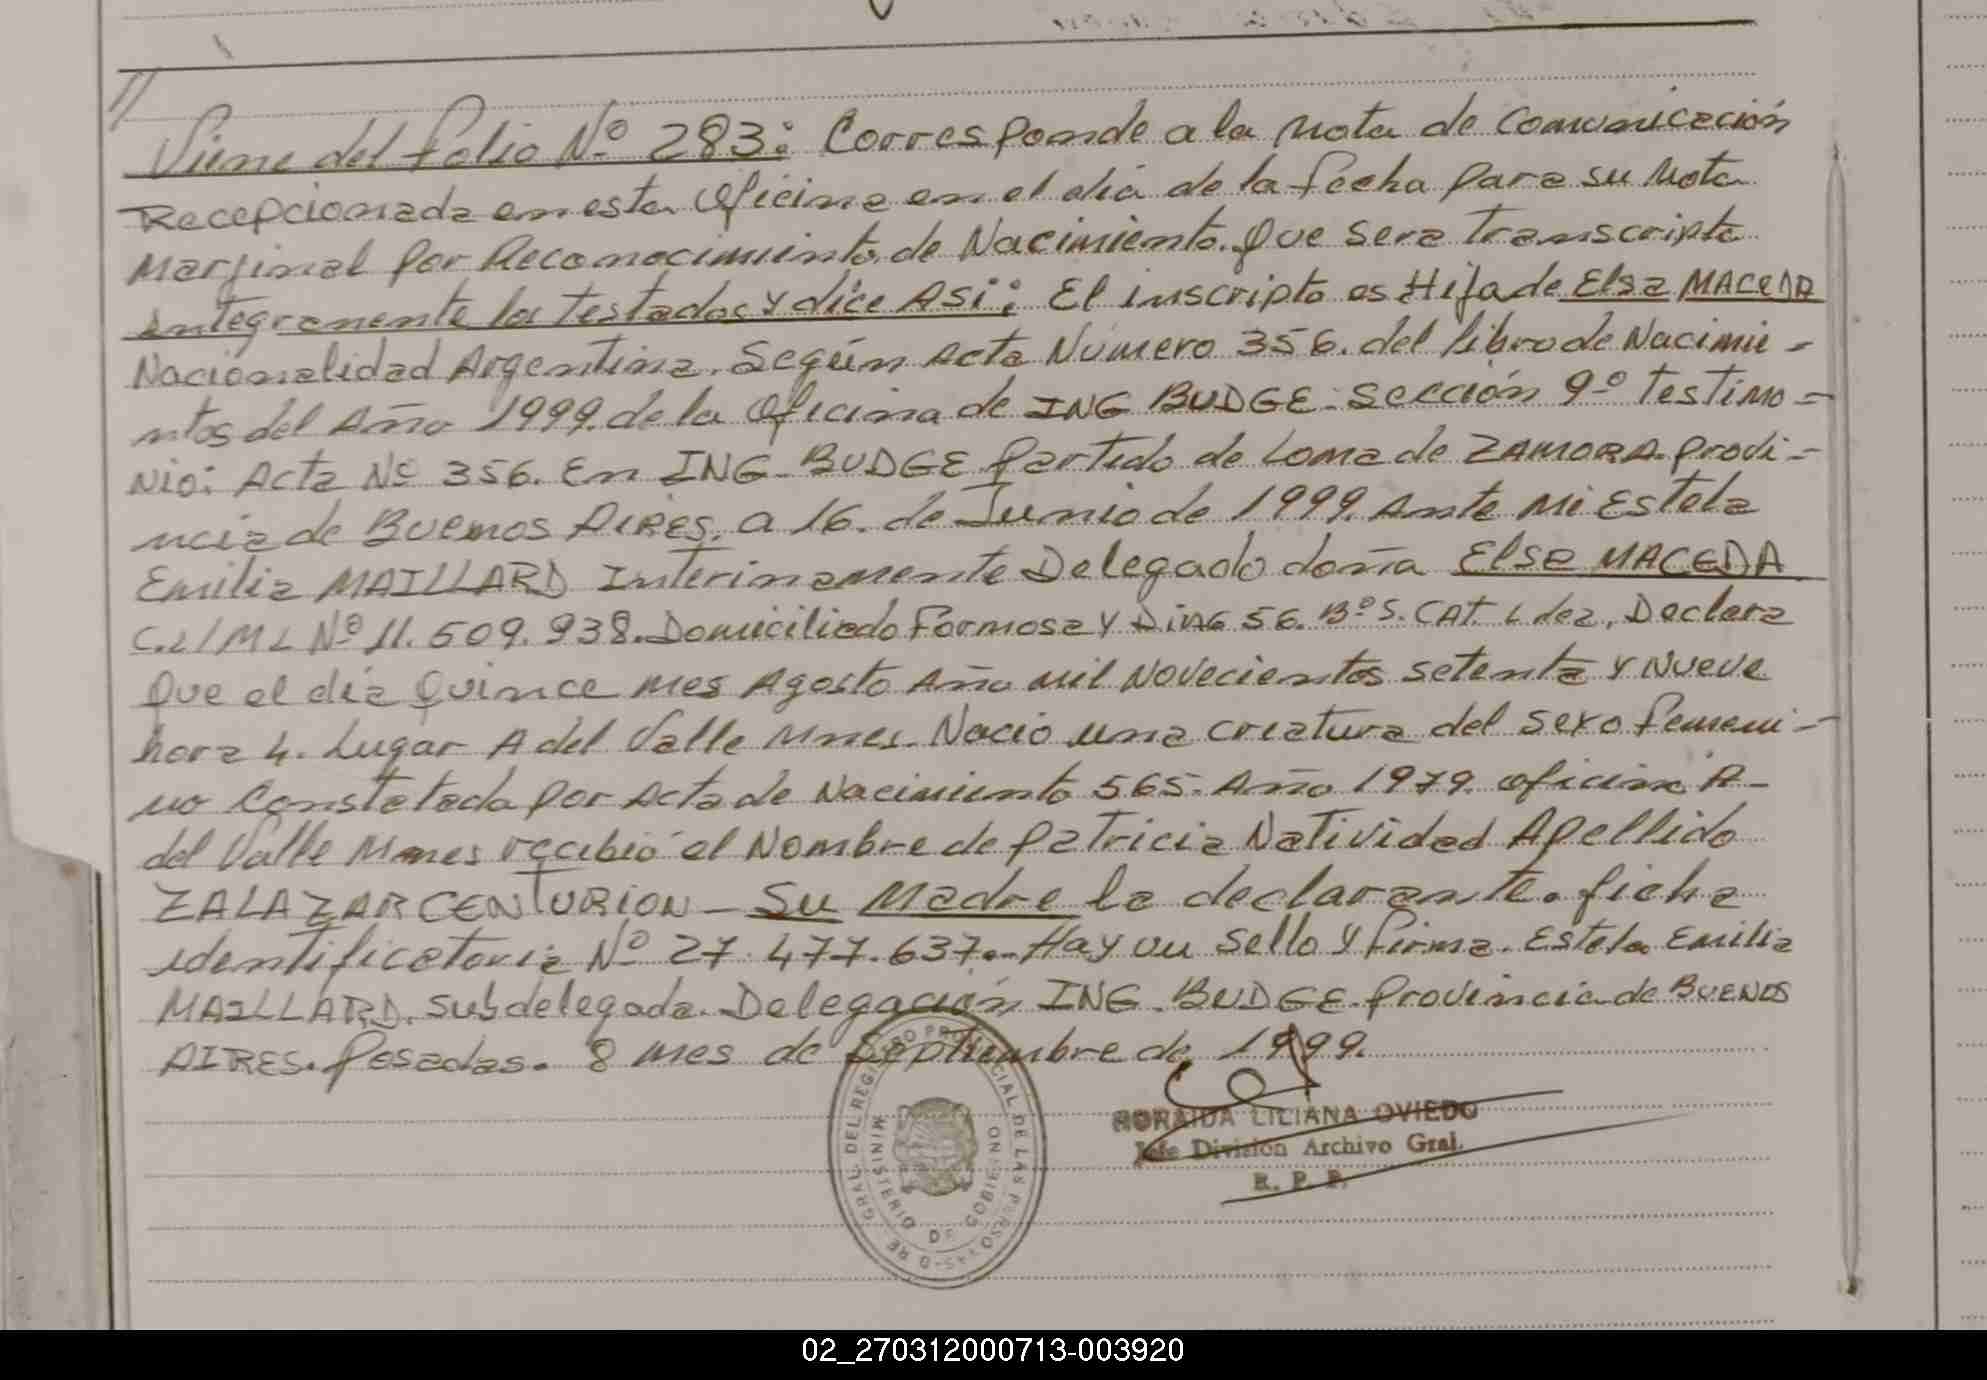 //
Viene del folio Nº 283: Corresponde a la Nota de Comunicación
Recepcionada en esta Oficina en el dia de la fecha para su Nota
Marginal por Reconocimiento de Nacimiento. Que sera Transcripta
integramente los Testados y dice Asi: El inscripto es Hija de Elsa MACEDA
Nacionalidad Argentina. Según Acta Número 356. del libro de Nacimie -
ntos del Año 1999. de la Oficina de ING BUDGE. Sección 9º Testimo =
Nio: Acta Nº 356. En ING. BUDGE partido de Loma de ZAMORA. provi -
ncia de Buenos AiRES. a 16. de Junio de 1999. Ante Mi Estela
Emilia MAILLARD Interinamente Delegado doña Elsa MACEDA
Nº 11.609.938. Domiciliado Formosa y 56. Bº S. CAT. Declara
Que el dia Quince mes Agosto Año mil Novecientos setenta y Nueve
hora 4. Lugar A del Valle Mnes. Nacio una criatura del sexo femeni -
no Constatada por Acta de Nacimiento 565. Año 1979. oficina A -
del Valle Mnes recibió el Nombre de Patricia Natividad Apellido
ZALAZAR CENTURION - Su Madre la declarante. ficha
identificatoria Nº 27.477.637.- Hay un Sello y firma. Estela Emilia
MAILLARD. Subdelegada. Delegación ING. BUDGE. provincia de BUENOS
AIRES. Posadas. 8 mes de Septiembre de 1999.
ZORAIDA LILIANA OVIEDO
Jefe División Archivo Gral.
R. P. P.
GRAL. DEL REGISTRO PROVINCIAL DE LAS PERSONAS
MINISTERIO DE GOBIERNO
02_270312000713-003920